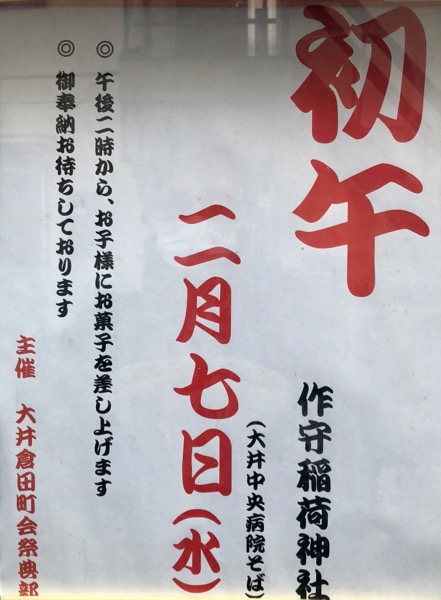 初午
作守稲荷神社
(大井中央病院そば)
二月七日(水)
◎ 午後二時から、お子様にお菓子を差し上げます
◎ 御奉納お待ちしております
主催 大井倉田町会祭典部